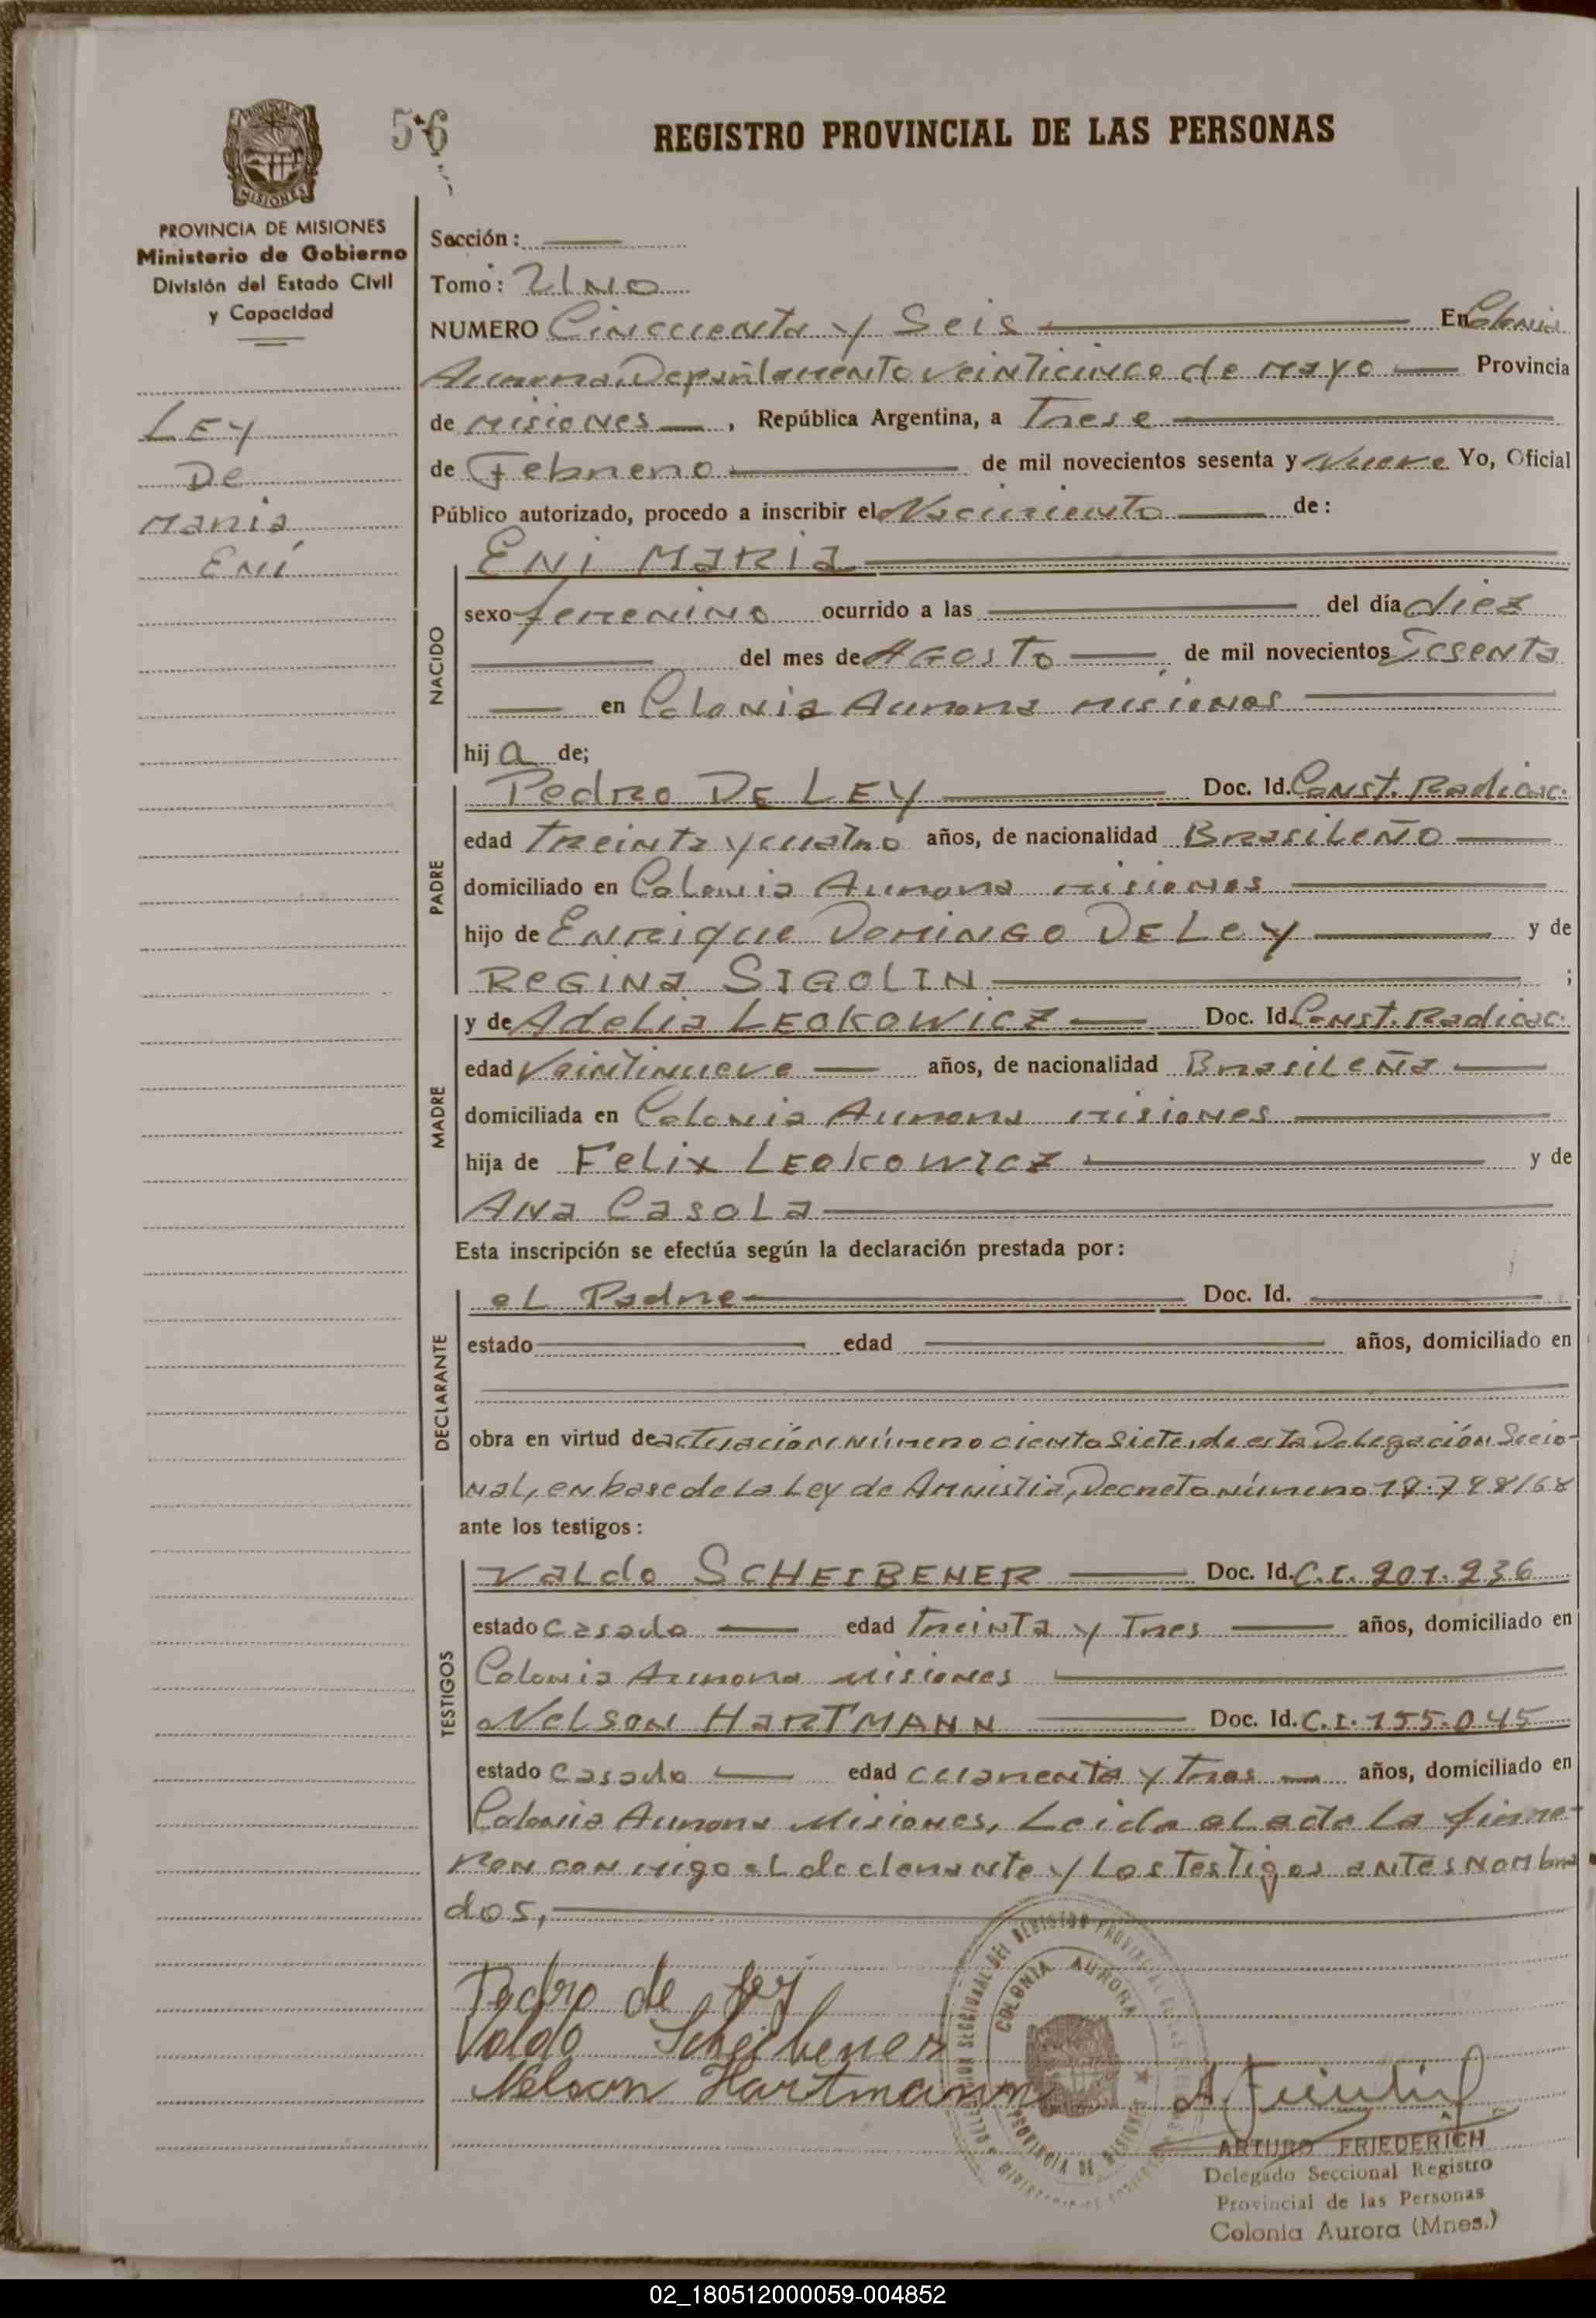 56
REGISTRO PROVINCIAL DE LAS PERSONAS
PROVINCIA DE MISIONES
Ministerio de Gobierno
División del Estado Civil
y Capacidad
LEY
De
Maria
Ení
Sección:
Tomo: UNO
NUMERO Cincuenta y Seis En Colonia
Aurora, Departamento Veinticinco de Mayo Provincia
de Misiones, República Argentina, a Trese
de Febrero de mil novecientos sesenta y Nueve Yo, Oficial
Público autorizado, procedo a inscribir el Nacimiento de:
NACIDO
ENI MARIA
sexo femenino ocurrido a las del día diez
del mes de AGOSTO de mil novecientos Sesenta
en Colonia Aurora Misiones
hija de;
PADRE
Pedro DE LEY Doc. Id. Const. Radicac.
edad treinta y cuatro años, de nacionalidad Brasileño
domiciliado en Colonia Aurora Misiones
hijo de Enrique Domingo DE LEY y de
Regina SIGOLIN ;
MADRE
y de Adelia LEOKOWICZ Doc. Id. Const. Radicac.
edad Veintinueve años, de nacionalidad Brasileña
domiciliada en Colonia Aurora Misiones
hija de Felix LEOKOWICZ y de
Ana Casola
Esta inscripción se efectúa según la declaración prestada por:
DECLARANTE
el Padre Doc. Id.
estado edad años, domiciliado en
obra en virtud de actuación número ciento siete, de esta Delegación Secio-
nal, en base de la Ley de Amnistia, Decreto número 17.798/68
ante los testigos:
TESTIGOS
Valdo SCHEIBENER Doc. Id. C.I. 201.236
estado casado edad Treinta y Tres años, domiciliado en
Colonia Aurora Misiones
Nelson HARTMANN Doc. Id. C.I. 155.045
estado Casado edad cuarenta y tres años, domiciliado en
Colonia Aurora Misiones, Leida el acta la firma-
ron con migo el declarante y los testigos antes nombra
dos,
Pedro de Ley
Valdo Scheibener
Nelson Hartmann
COLONIA AURORA
PROVINCIA DE MISIONES
ARTURO FRIEDERICH
Delegado Seccional Registro
Provincial de las Personas
Colonia Aurora (Mnes.)
02_180512000059-004852